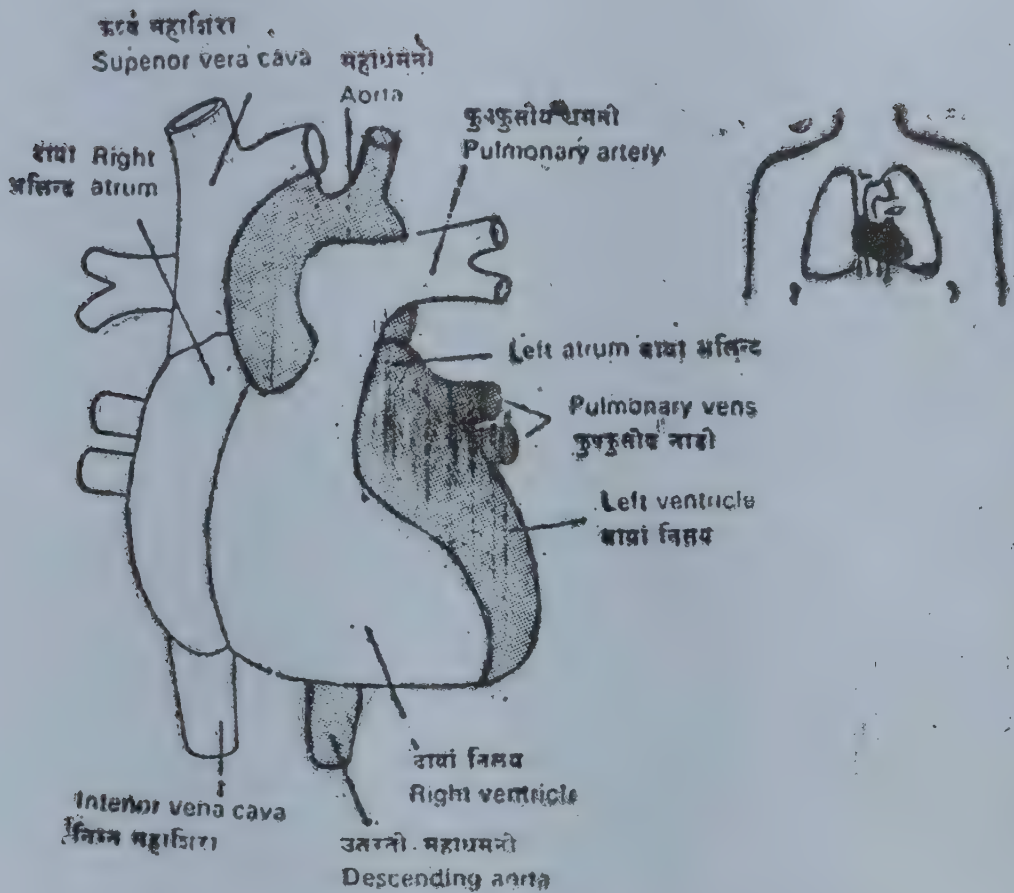 ऊर्ध्व महाशिरा
Supenor vera cava
महाधमनी
Aorta
फुफ्फुसीय धमनी
Pulmonary artery
दायां Right
अलिन्द atrum
Left atrum बायां अलिन्द
Pulmonary vens
फुफ्फुसीय नाडी
Left ventricle
बायां निलय
दायां निलय
Right ventricle
Interior vena cava
निम्न महाशिरा
उतरती महाधमनी
Descending aorta